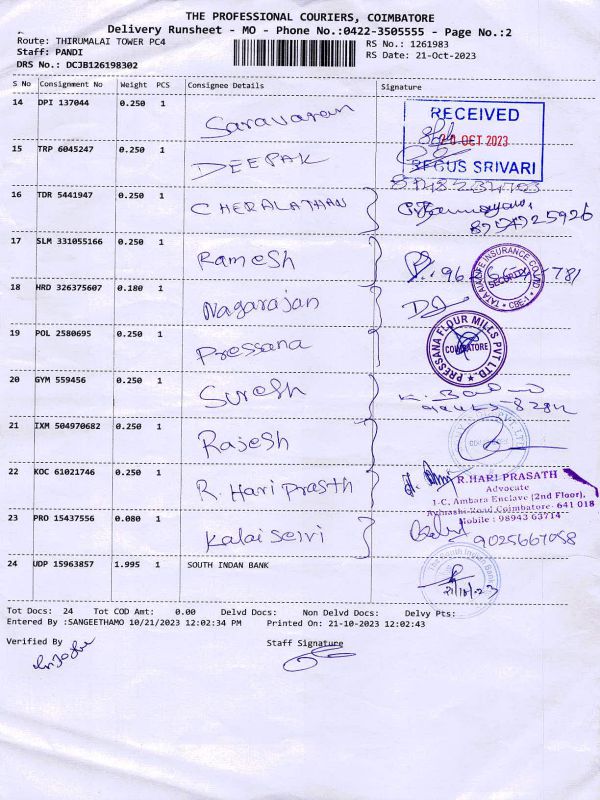 THE PROFESSIONAL COURIERS, COIMBATORE
Delivery Runsheet - MO - Phone No.:0422-3505555 - Page No.:2
Route: THIRUMALAI TOWER PC4
RS No.: 1261983
Staff: PANDI
RS Date: 21-Oct-2023
DRS No.: DCJB126198302
S No Consignment No Weight PCS Consignee Details Signature
14 DPI 137044 0.250 1 Saravanan
RECEIVED
OCT 2023
REGUS SRIVARI
15 TRP 6045247 0.250 1 DEEPAK
16 TDR 5441947 0.250 1 CHERALATHAN
8754725926
17 SLM 331055166 0.250 1 Ramesh
TATA AIA LIFE INSURANCE CO LTD
SECURITY
CBE-1
18 HRD 326375607 0.180 1 Nagarajan
19 POL 2580695 0.250 1 Pressana
PRESSANA FLOUR MILLS PVT LTD.
COIMBATORE
20 GYM 559456 0.250 1 Suresh
21 IXM 504970682 0.250 1 Rajesh
22 KOC 61021746 0.250 1 R. Hari Prasath
R.HARI PRASATH
Advocate
1-C, Ambara Enclave (2nd Floor),
Avinashi Road, Coimbatore- 641 018
Mobile : 98943 63714
23 PRO 15437556 0.080 1 Kalai Selvi
9025667058
24 UDP 15963857 1.995 1 SOUTH INDAN BANK
The South Indian Bank
21/10/23
Tot Docs: 24 Tot COD Amt: 0.00 Delvd Docs: Non Delvd Docs: Delvy Pts:
Entered By :SANGEETHAMO 10/21/2023 12:02:34 PM Printed On: 21-10-2023 12:02:43
Verified By Staff Signature